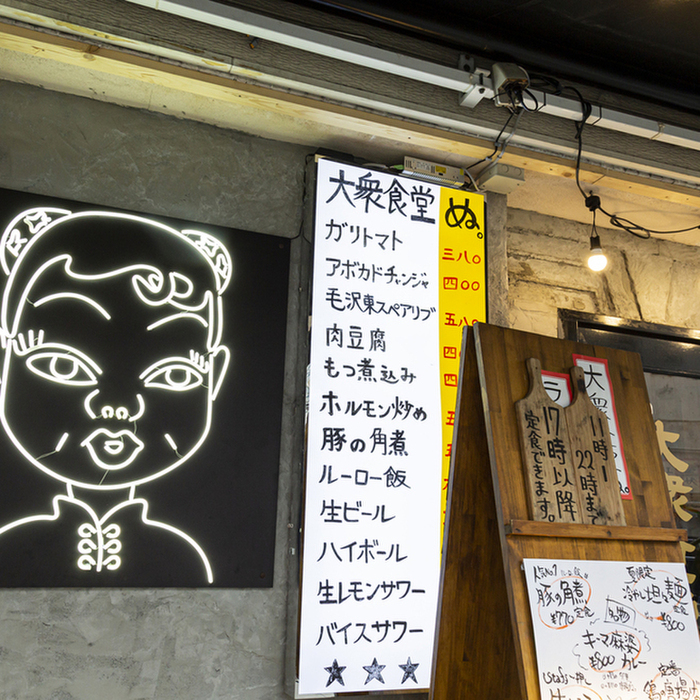 大衆食堂 ぬ。
ガリトマト 三八〇
アボカドチャンジャ 四〇〇
毛沢東スペアリブ 五八〇
肉豆腐 四
もつ煮込み 四
ホルモン炒め 五
豚の角煮
ルーロー飯
生ビール
ハイボール
生レモンサワー
バイスサワー
★★★
大衆
ラ
11時〜
22時まで
17時以降
定食できます。
大衆
人気No.1
豚の角煮
定食
¥770
夏限定
冷やし担々麺
定食
¥800
名物
キーマ麻婆
カレー
¥800